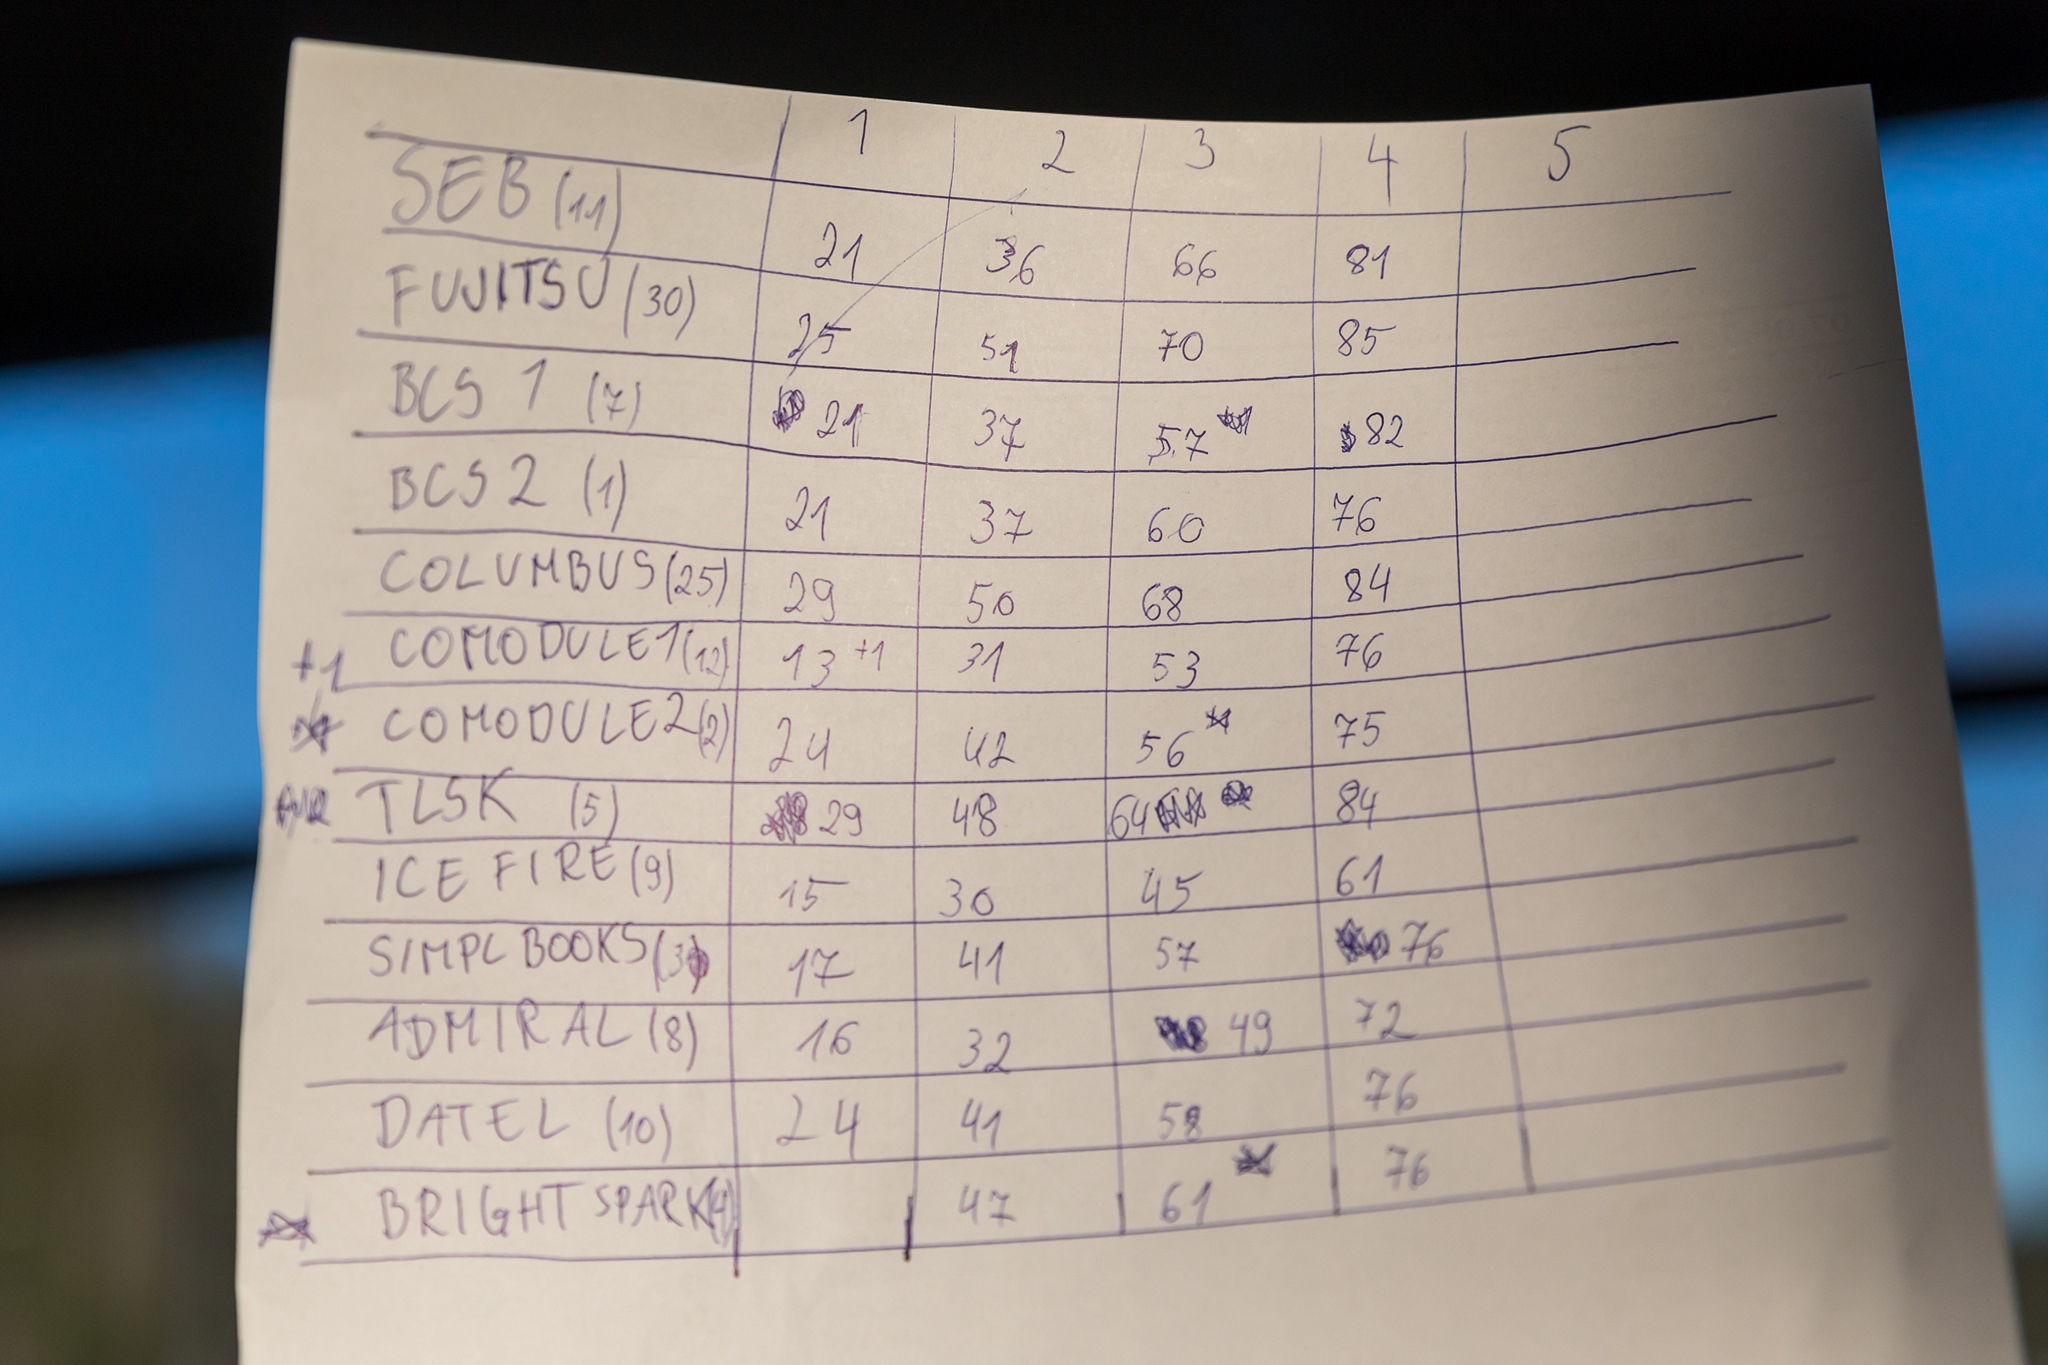 1 2 3 4 5
SEB (11) 21 36 66 81
FUJITSU (30) 25 51 70 85
BCS 1 (7) 21 37 57 82
BCS 2 (1) 21 37 60 76
COLUMBUS (25) 29 50 68 84
+1 COMODULE 1 (12) 13 +1 31 53 76
COMODULE 2 (2) 24 42 56 75
TLSK (5) 29 48 64 84
ICE FIRE (9) 15 30 45 61
SIMPL BOOKS 17 41 57 76
ADMIRAL (8) 16 32 49 72
DATEL (10) 24 41 58 76
BRIGHT SPARK 47 61 76